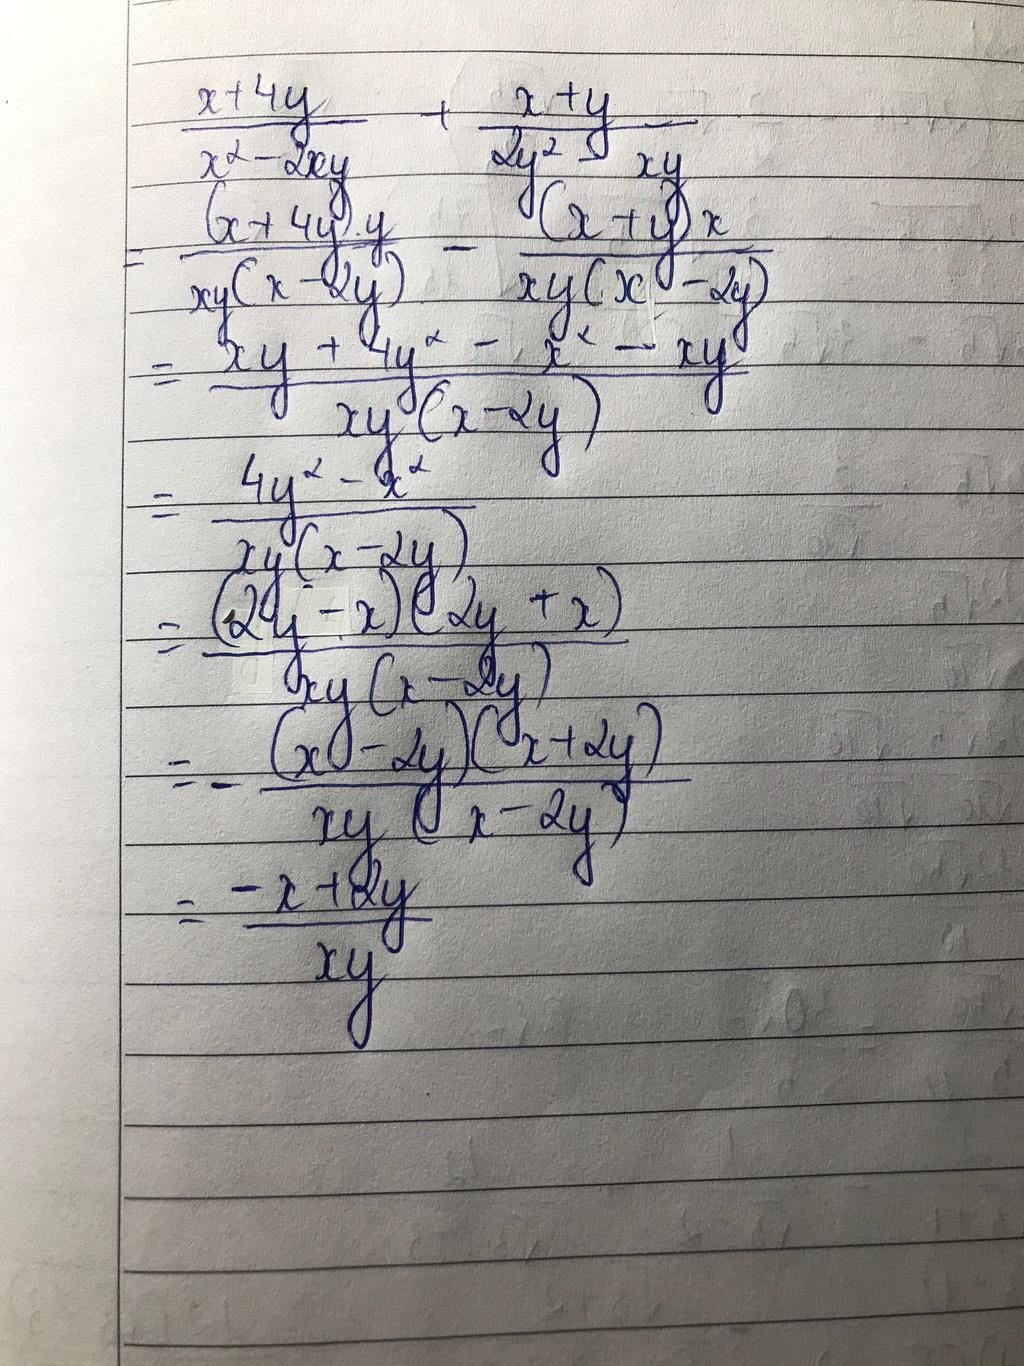 x+4y / x² - 2xy + x+y / 2y² - xy
= (x+4y).y / xy(x-2y) - (x+y)x / xy(x-2y)
= xy + 4y² - x² - xy / xy(x-2y)
= 4y² - x² / xy(x-2y)
= (2y - x)(2y + x) / xy(x-2y)
= - (x-2y)(x+2y) / xy(x-2y)
= -x+2y / xy